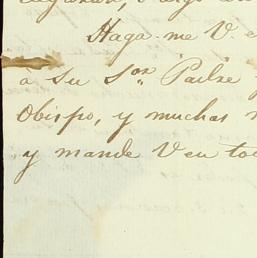 Haga-me V. e
á Su Sor. Padre
Obispo, y muchas
y mande V en to